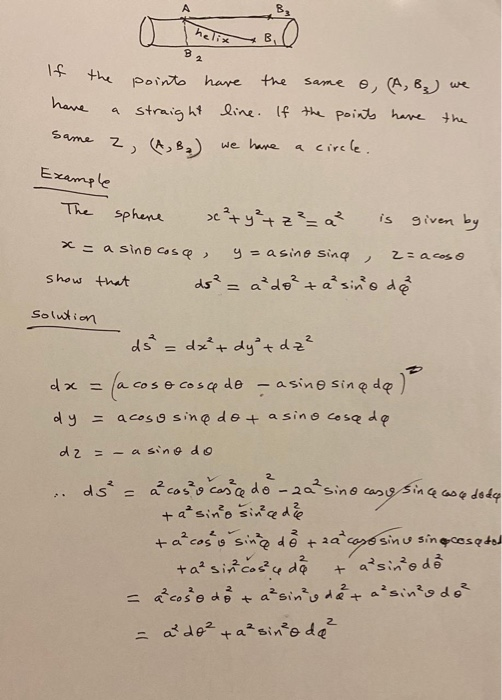 A B₃
helix B₁
B₂
If the points have the same θ, (A, B₃) we
have a straight line. If the points have the
same z, (A, B₂) we have a circle.
Example
The sphere x² + y² + z² = a² is given by
x = a sinθ cosφ, y = a sinθ sinφ, z = a cosθ
show that ds² = a² dθ² + a² sin²θ dφ²
Solution
ds² = dx² + dy² + dz²
dx = (a cosθ cosφ dθ - a sinθ sinφ dφ)²
dy = a cosθ sinφ dθ + a sinθ cosφ dφ
dz = - a sinθ dθ
∴ ds² = a² cos²θ cos²φ dθ² - 2a² sinθ cosθ sinφ cosφ dθdφ
+ a² sin²θ sin²φ dφ²
+ a² cos²θ sin²φ dθ² + 2a² cosθ sinθ sinφ cosφ dθd
+ a² sin² cos²φ dφ² + a² sin²θ dθ²
= a² cos²θ dθ² + a² sin²θ dφ² + a² sin²θ dθ²
= a² dθ² + a² sin²θ dφ²